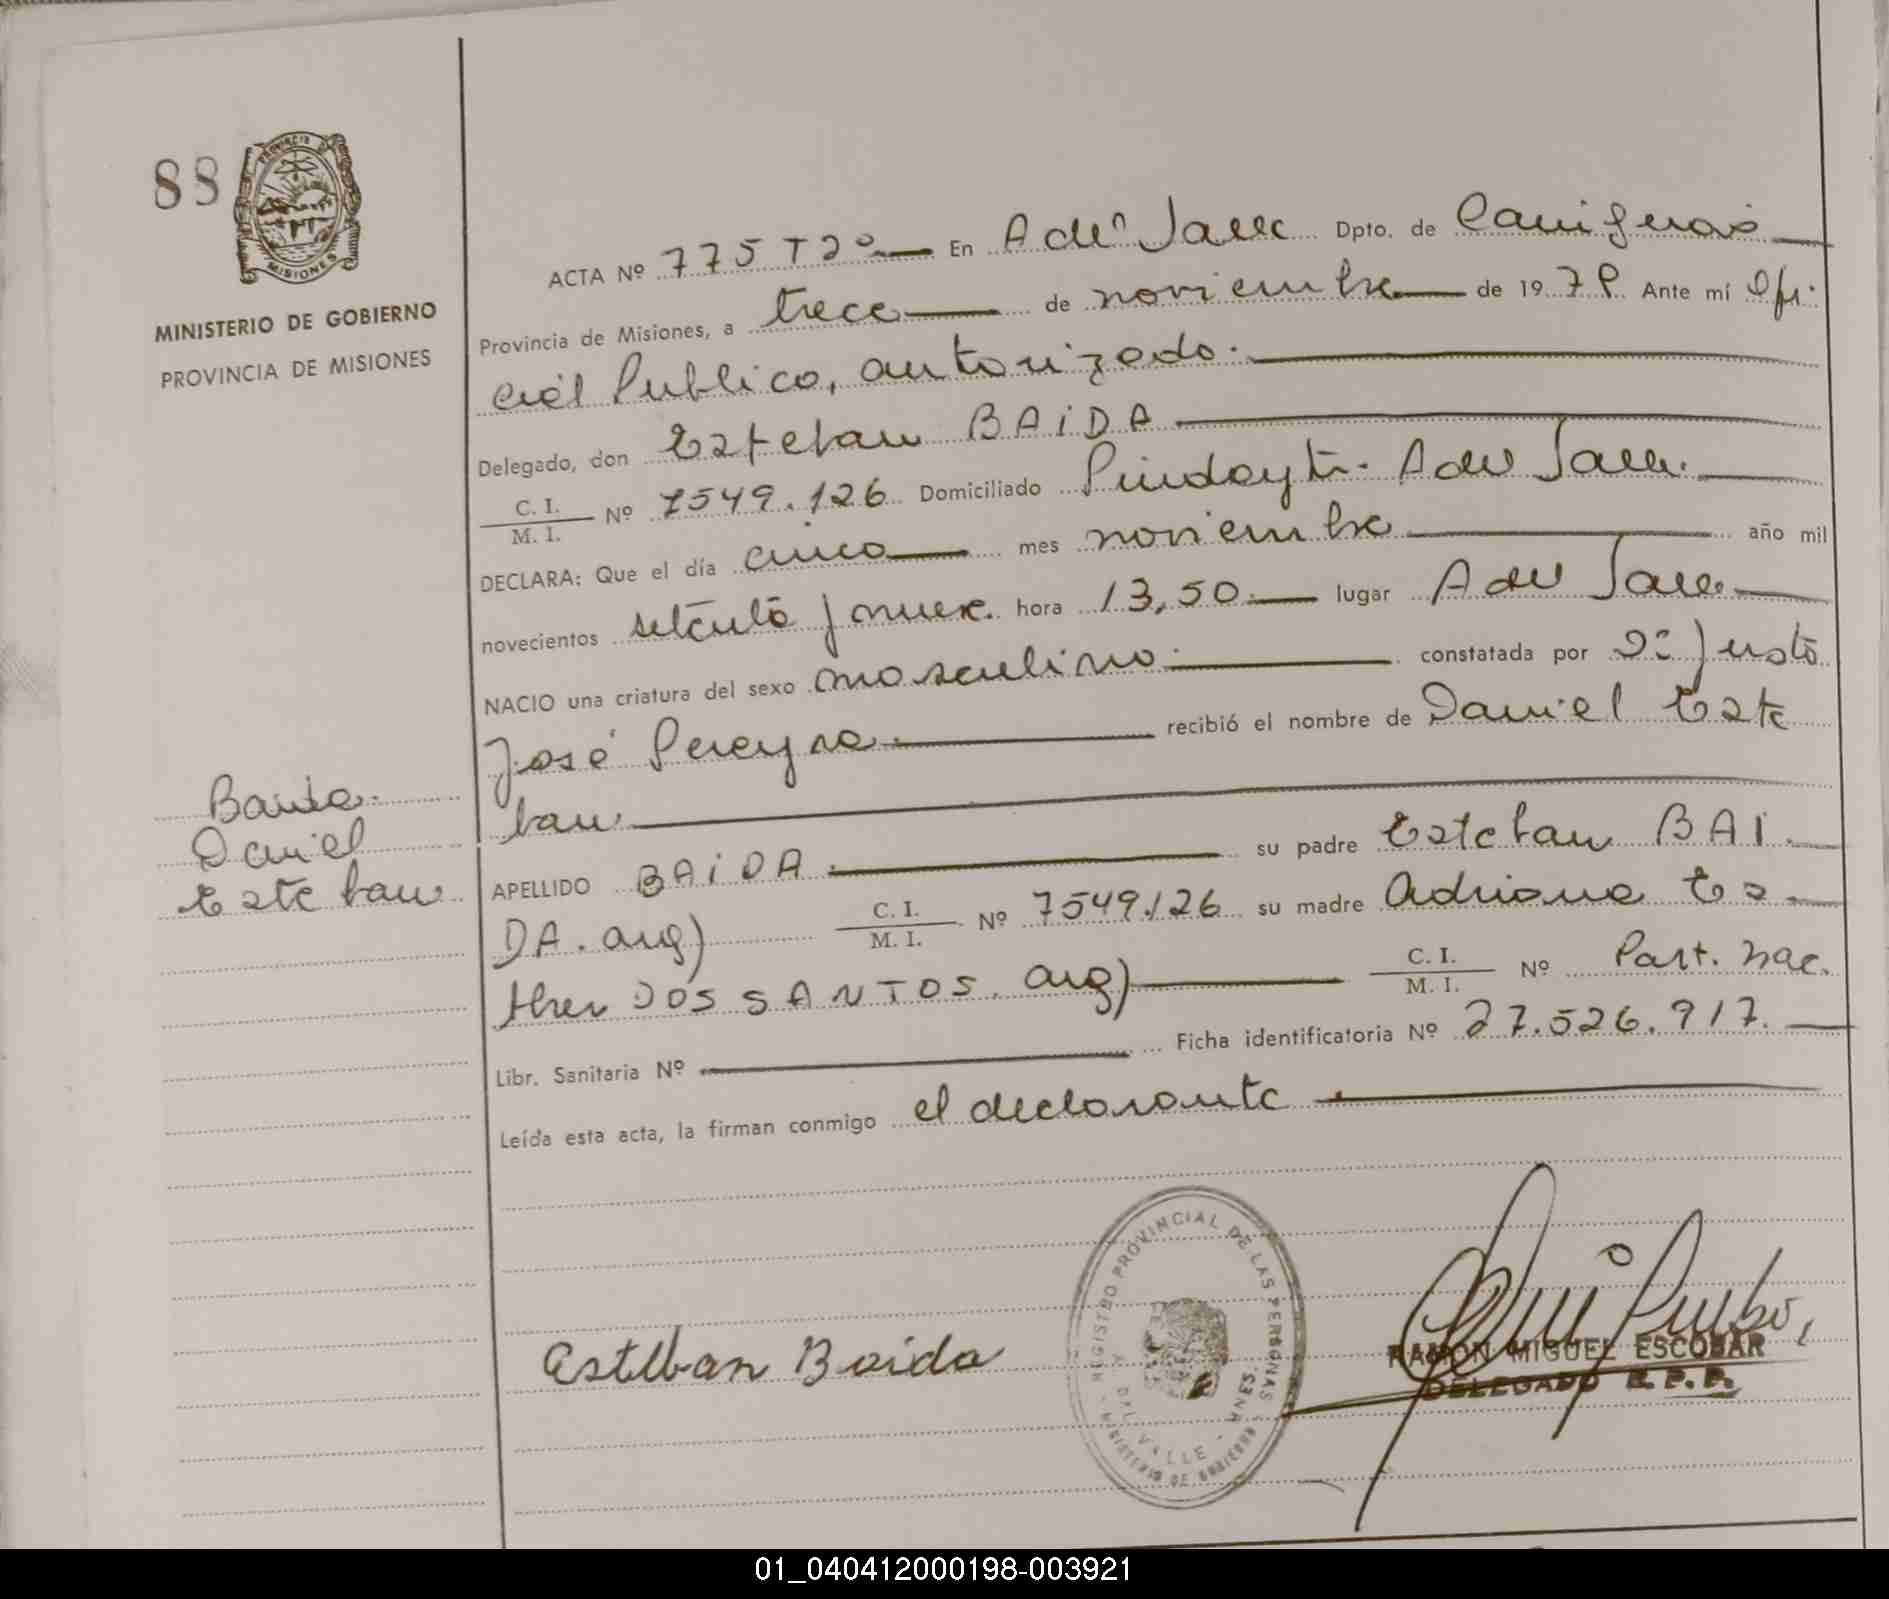 88
PROVINCIA DE
MISIONES
MINISTERIO DE GOBIERNO
PROVINCIA DE MISIONES
ACTA Nº 775 T2º En A. del Valle Dpto. de Cainguás
Provincia de Misiones, a trece de noviembre de 1979. Ante mí Ofi-
cial Publico, autorizado.
Delegado, don Esteban BAIDA
C. I. / M. I. Nº 7549.126 Domiciliado Pindayti. A del Valle.
DECLARA: Que el día cinco mes noviembre año mil
novecientos setenta y nueve. hora 13,50. lugar A del Valle
NACIO una criatura del sexo masculino. constatada por Dº Justo
José Pereyra recibió el nombre de Daniel Este
ban.
APELLIDO BAIDA. su padre Esteban BAI-
DA. arg) C. I. / M. I. Nº 7549.126 su madre Adriana Es-
ther DOS SANTOS. arg) C. I. / M. I. Nº Part. nac.
Libr. Sanitaria Nº Ficha identificatoria Nº 27.526.917.
Leída esta acta, la firman conmigo el declarante
Baida.
Daniel
Esteban
Esteban Baida
REGISTRO PROVINCIAL DE LAS PERSONAS
MINISTERIO DE GOBIERNO
A. DEL VALLE - MNES.
RAMON MIGUEL ESCOBAR
DELEGADO R.P.P.
01_040412000198-003921